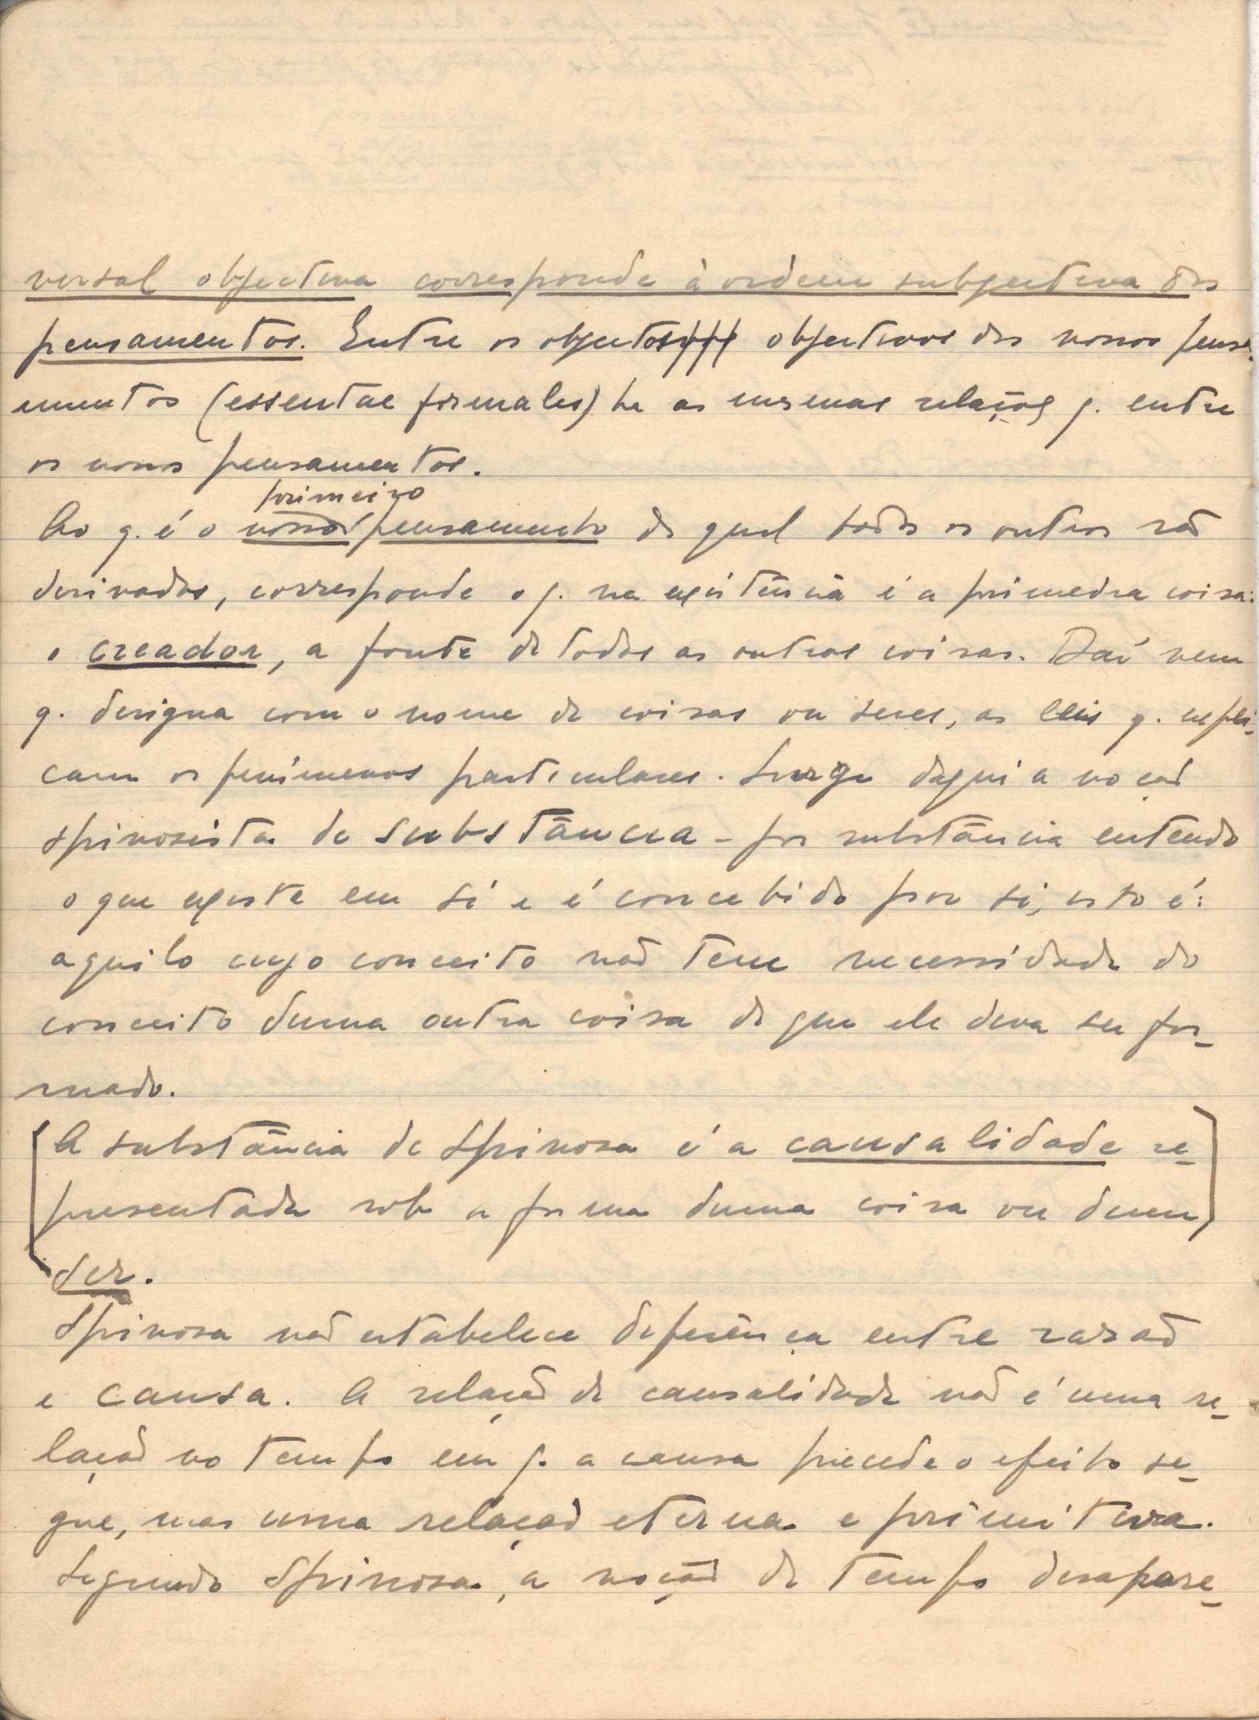 versal objectiva corresponde à ordem subjectiva dos
pensamentos. Entre os objectos objectivos dos nossos pensa-
mentos (essentae formales) ha as mesmas relações q. entre
os nossos pensamentos.
primeiro
Ao q. é o nosso pensamento do qual todos os outros são
derivados, corresponde o q. na existência é a primeira coisa:
o creador, a fonte de todas as outras coisas. Daí vem
q. designa com o nome de coisas ou seres, as leis q. expli-
cam os fenómenos particulares. Surge daqui a noção
spinosista de substância - por substância entendo
o que existe em si e é concebido por si, isto é:
aquilo cujo conceito não tem necessidade do
conceito duma outra coisa de que ele deva ser for-
mado.
[A substância de Spinosa é a causalidade re-
presentada sob a forma duma coisa ou dum]
ser.
Spinosa não estabelece diferença entre razão
e causa. A relação de causalidade não é uma re-
lação no tempo em q. a causa precede o efeito se-
gue, mas uma relação eterna e primitiva.
Segundo Spinosa, a noção de tempo desapare-